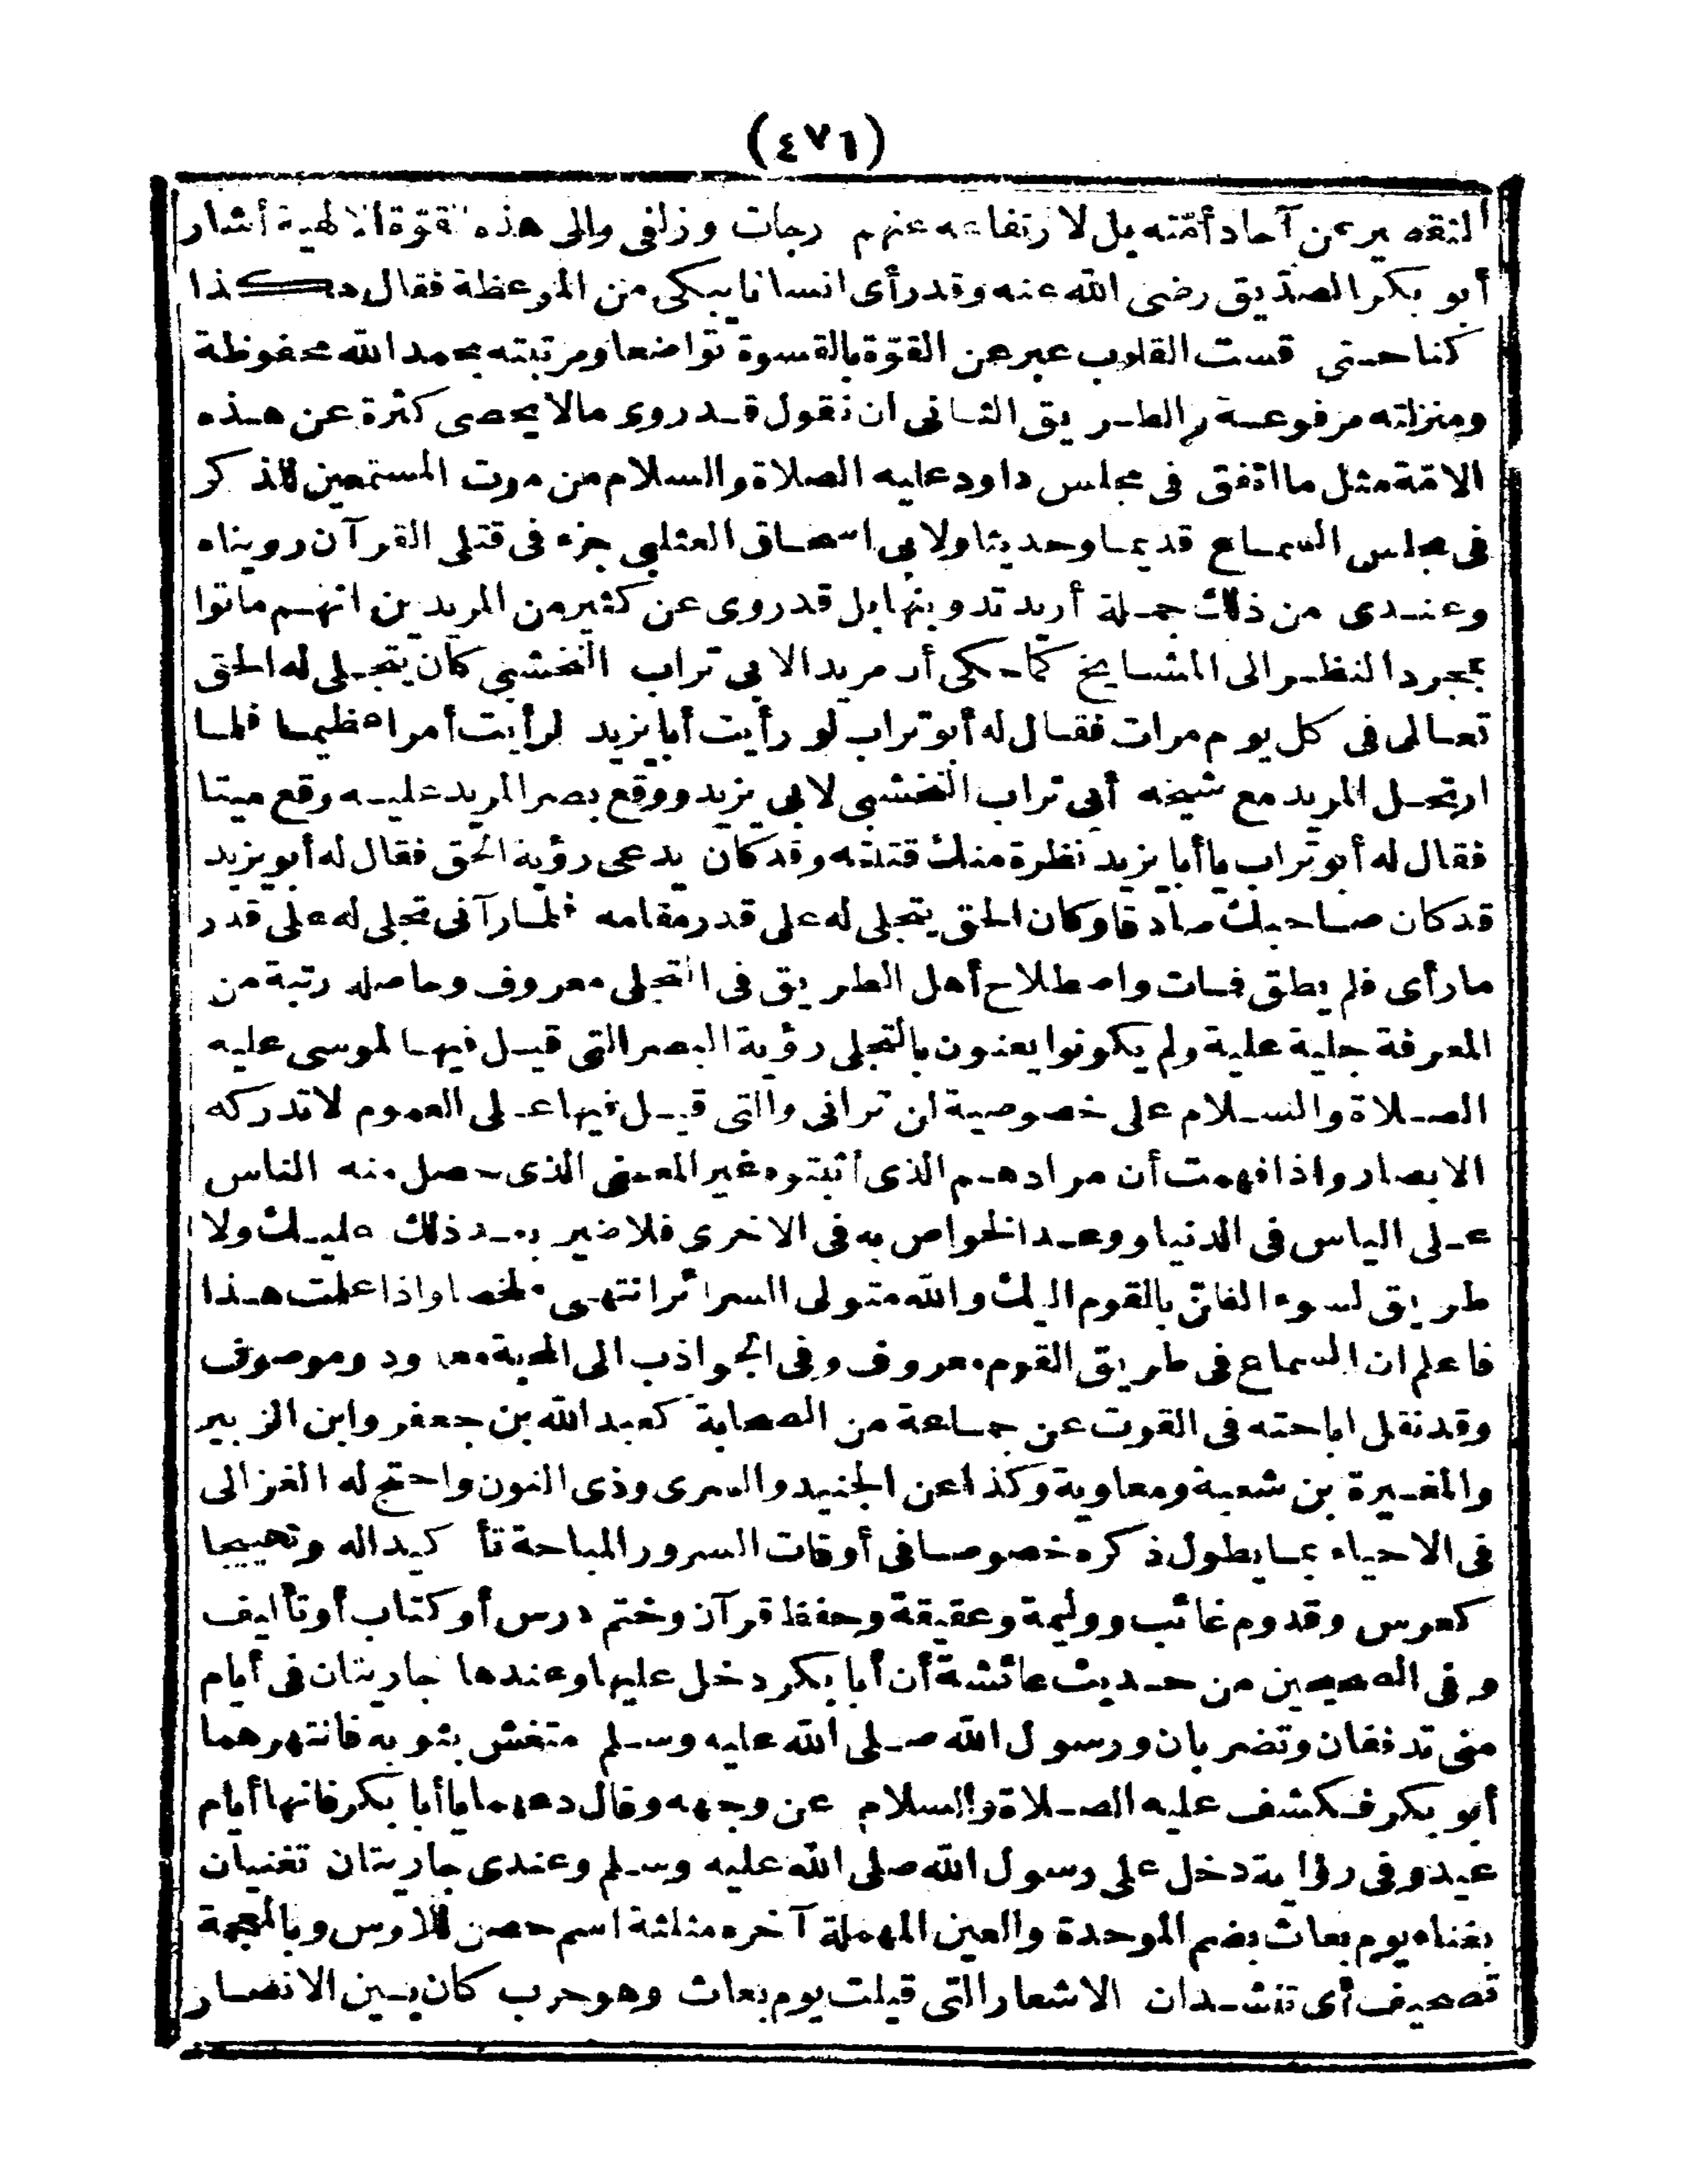 (٤٧٦)
التقصير عن آحاد أمّته بل لارتفاعه عنهم درجات وزلفى والى هذه القوّة الالهية أشار
أبو بكر الصدّيق رضى الله عنه وقد رأى انسانا يبكى من الموعظة فقال هكذا
كنا حتى قست القلوب عبر عن القوّة بالقسوة تواضعا ومرتبته بحمد الله محفوظة
ومنزلته مرفوعة والطريق الثانى ان نقول قد روى مالا يحصى كثرة عن هذه
الامّة مثل ما اتفق فى مجلس داود عليه الصلاة والسلام من موت المستمعين للذكر
فى مجلس السماع قديما وحديثا ولابى اسحاق الثعلبى جزء فى قتلى القرآن رويناه
وعندى من ذلك جملة أريد تدوينها بل قد روى عن كثير من المريدين انهم ماتوا
بمجرد النظر الى المشايخ كما حكى أن مريدا لابى تراب النخشبى كان يتجلى له الحق
تعالى فى كل يوم مرات فقال له أبو تراب لو رأيت أبا يزيد لرأيت أمرا عظيما فلما
ارتحل المريد مع شيخه أبى تراب النخشبى لابى يزيد ووقع بصر المريد عليه وقع ميتا
فقال له أبو تراب يا أبا يزيد نظرة منك قتلته وقد كان يدعى رؤية الحق فقال له أبو يزيد
قد كان صاحبك صادقا وكان الحق يتجلى له على قدر مقامه فلما رآنى تجلى له على قدر
ما رأى فلم يطق فمات واصطلاح أهل الطريق فى التجلى معروف وحاصله رتبة من
المعرفة جلية علية ولم يكونوا يعنون بالتجلى رؤية البصر التى قيل فيها لموسى عليه
الصلاة والسلام على خصوصية لن ترانى والتى قيل فيها على العموم لا تدركه
الابصار واذا فهمت أن مرادهم الذى أثبتوه غير المعنى الذى حصل منه الناس
على الياس فى الدنيا ووعد الخواص به فى الاخرى فلا ضير بعد ذلك عليك ولا
طريق لسوء الظنّ بالقوم اليك والله متولى السرائر انتهى ملخصا واذا علمت هذا
فاعلم ان السماع فى طريق القوم معروف وفى الجواذب الى المحبة معدود وموصوف
وقد نقل اباحته فى القوت عن جماعة من الصحابة كعبد الله بن جعفر وابن الزبير
والمغيرة بن شعبة ومعاوية وكذا عن الجنيد والسرى وذى النون واحتج له الغزالى
فى الاحياء بما يطول ذكره خصوصا فى أوقات السرور المباحة تأكيدا له وتهييجا
كعرس وقدوم غائب ووليمة وعقيقة وحفظ قرآن وختم درس أو كتاب أو تأليف
وفى الصحيحين من حديث عائشة أن أبا بكر دخل عليها وعندها جاريتان فى أيام
منى تدففان وتضربان ورسول الله صلى الله عليه وسلم متغش بثوبه فانتهرهما
أبو بكر فكشف عليه الصلاة والسلام عن وجهه وقال دعهما يا أبا بكر فانها أيام
عيد وفى رواية دخل على رسول الله صلى الله عليه وسلم وعندى جاريتان تغنيان
بغناء يوم بعاث بضم الموحدة والعين المهملة آخره مثلثة اسم حصن للاوس وبالمعجمة
تصحيف أى تنشدان الاشعار التى قيلت يوم بعاث وهو حرب كان بين الانصار